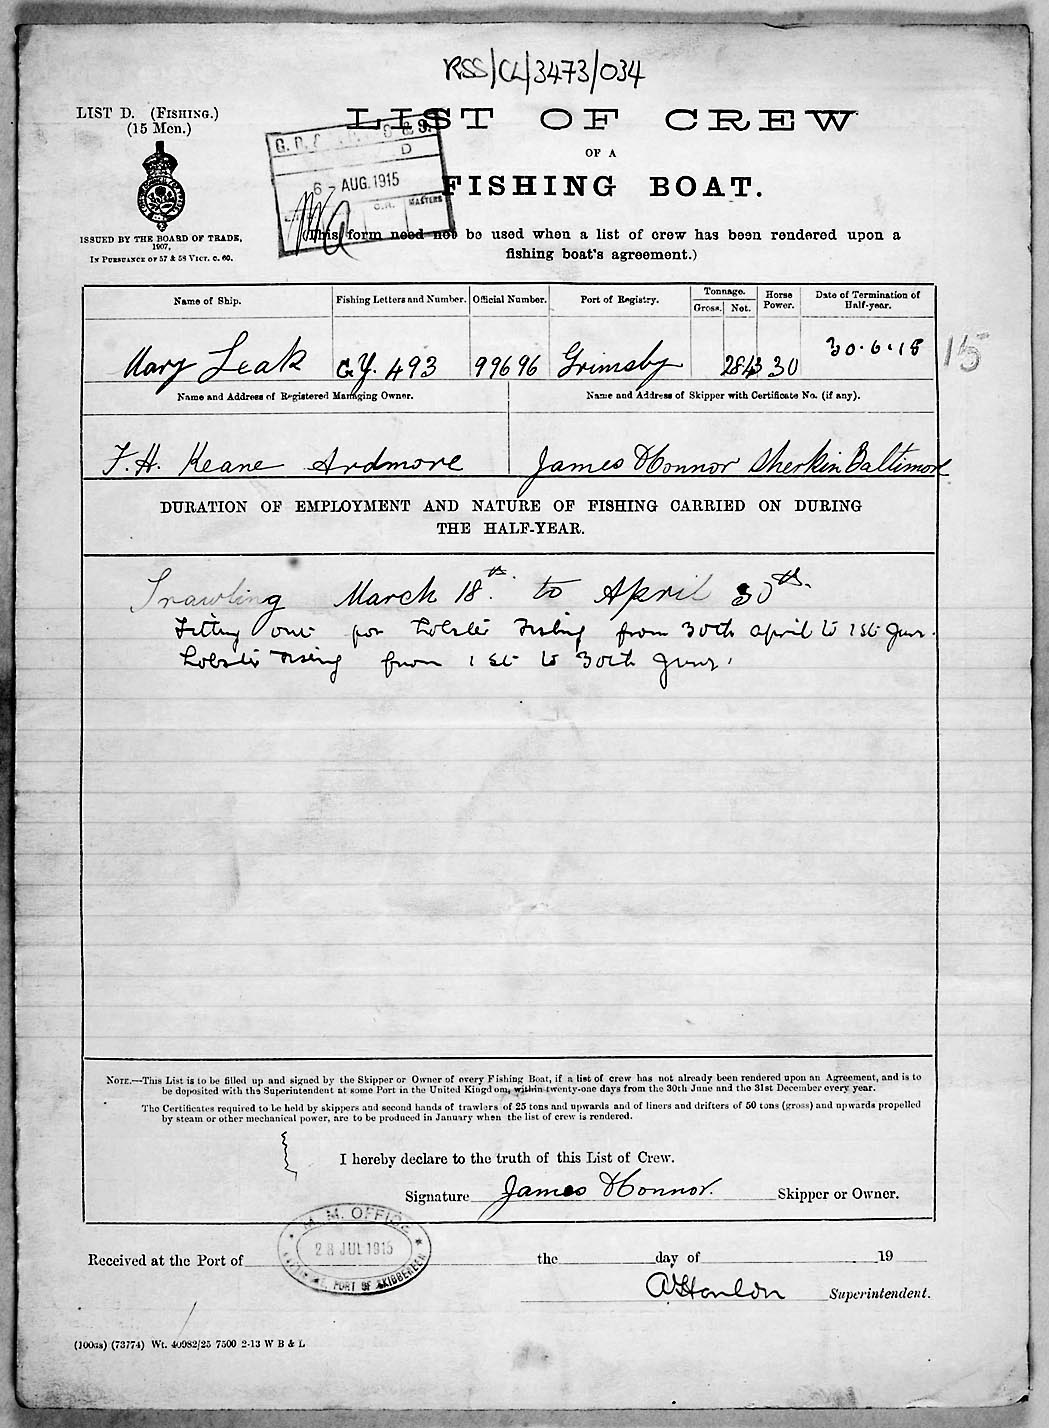 RSS/CL/3473/034
LIST D. (FISHING.)
(15 Men.)
LIST OF CREW
OF A
FISHING BOAT.
6 - AUG. 1915
MASTERS
ISSUED BY THE BOARD OF TRADE,
1907,
IN PURSUANCE OF 57 & 58 VICT. C. 60.
(This form need not be used when a list of crew has been rendered upon a
fishing boat's agreement.)
Name of Ship. Fishing Letters and Number. Official Number. Port of Registry. Tonnage. Gross. Net. Horse Power. Date of Termination of Half-year.
Mary Leak GY. 493 99696 Grimsby 30 30.6.15
15
Name and Address of Registered Managing Owner. Name and Address of Skipper with Certificate No. (if any).
F. H. Keane Ardmore James O'Connor Sherkin Baltimore
DURATION OF EMPLOYMENT AND NATURE OF FISHING CARRIED ON DURING
THE HALF-YEAR.
Trawling March 18th. to April 30th.
Fitting out for Lobster Fishing from 30th april to 1st June.
Lobster Fishing from 1st to 30th June.
NOTE.—This List is to be filled up and signed by the Skipper or Owner of every Fishing Boat, if a list of crew has not already been rendered upon an Agreement, and is to
be deposited with the Superintendent at some Port in the United Kingdom, within twenty-one days from the 30th June and the 31st December every year.
The Certificates required to be held by skippers and second hands of trawlers of 25 tons and upwards and of liners and drifters of 50 tons (gross) and upwards propelled
by steam or other mechanical power, are to be produced in January when the list of crew is rendered.
I hereby declare to the truth of this List of Crew.
Signature James O'Connor. Skipper or Owner.
M. M. OFFICE
28 JUL 1915
PORT OF SKIBBEREEN
Received at the Port of the day of 19
Superintendent.
(100gs) (73774) Wt. 40982/25 7500 2-13 W B & L